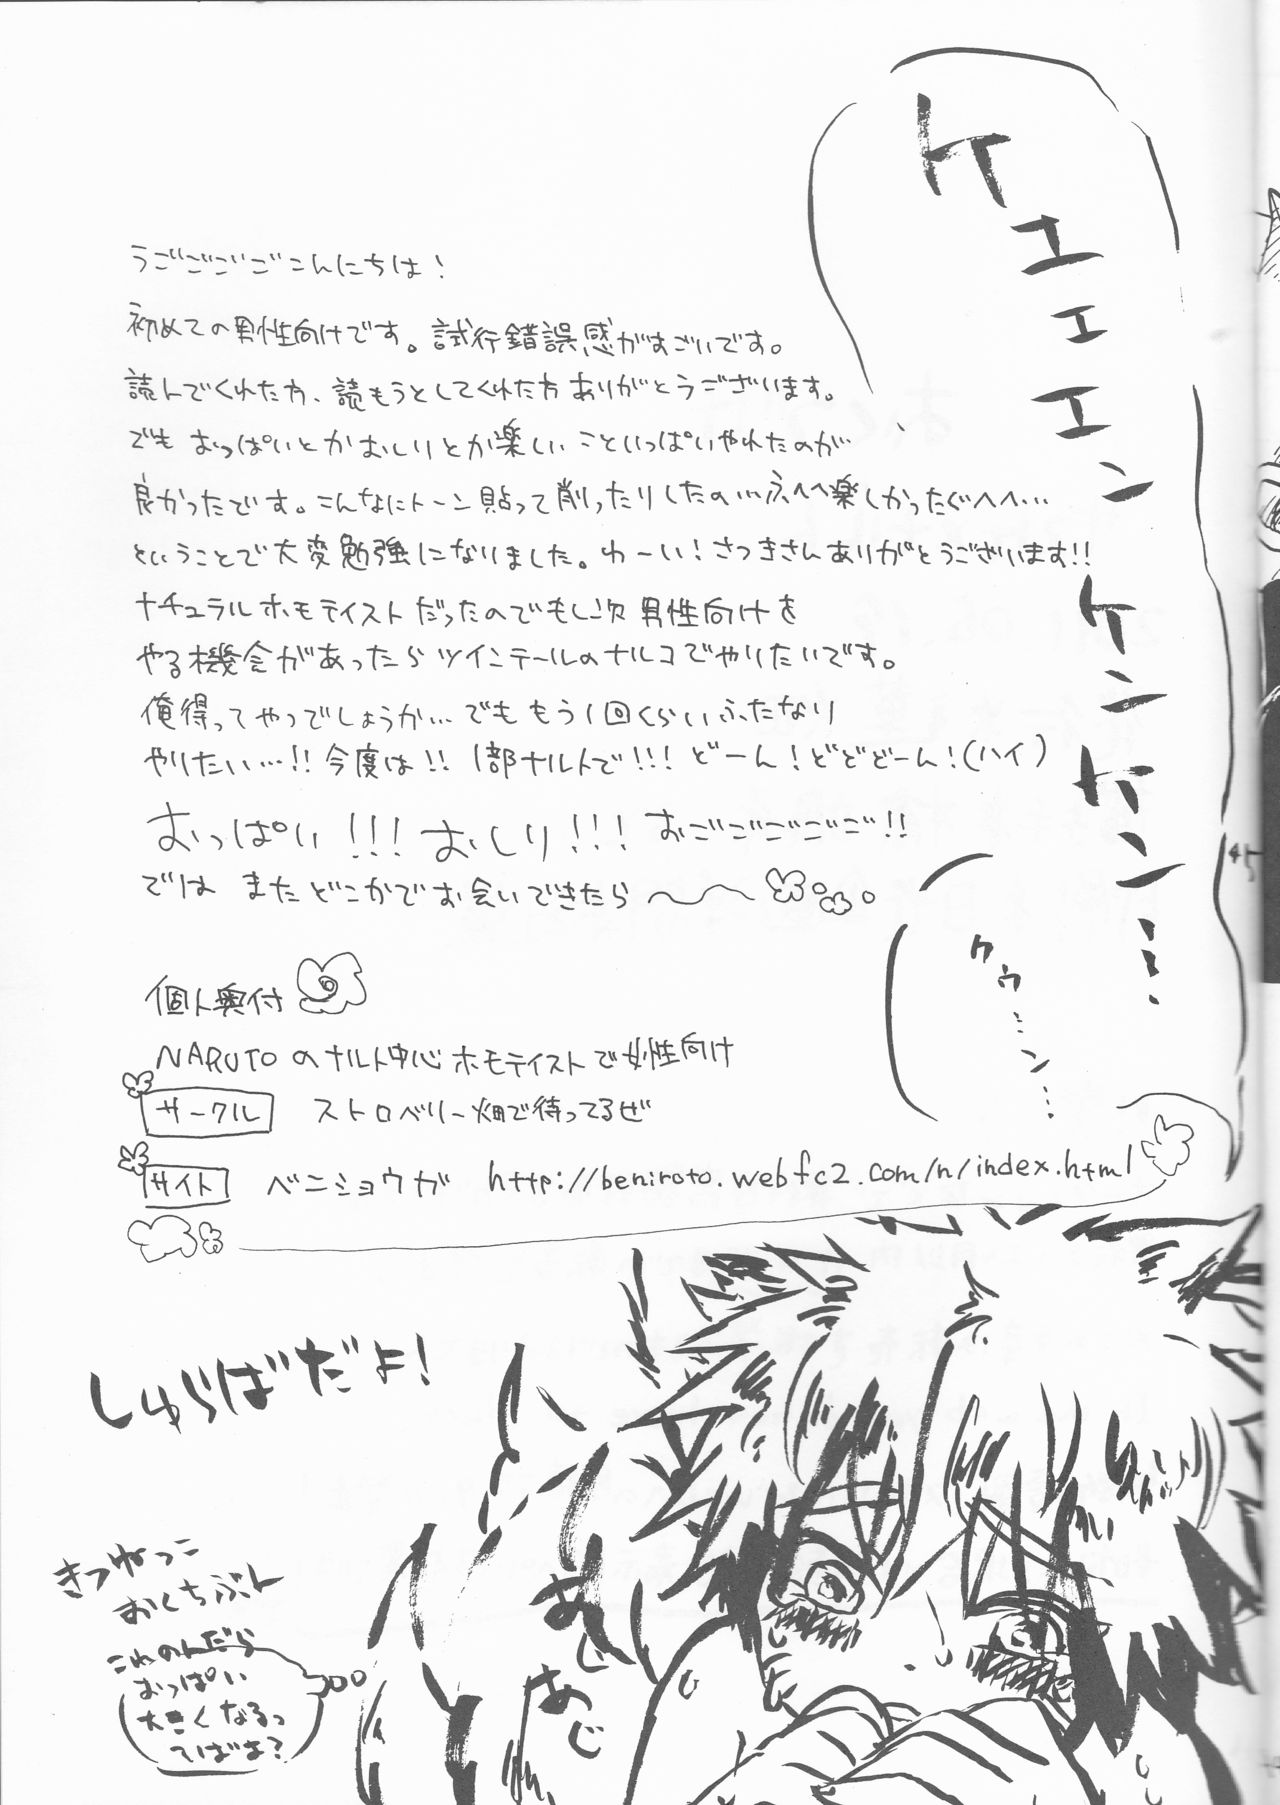 ケエエエンケンケン…
うごごごごこんにちは!
初めての男性向けです。試行錯誤感がすごいです。
読んでくれた方、読もうとしてくれた方ありがとうございます。
でもおっぱいとかおしりとか楽しいこといっぱいやれたのが
良かったです。こんなにトーン貼って削ったりしたの…ふへへ楽しかったぐへへ…
ということで大変勉強になりました。わーい!さつきさんありがとうございます!!
ナチュラルホモテイストだったのでもし次男性向けを
やる機会があったらツインテールのナルコでやりたいです。
俺得ってやつでしょうか…でももう1回くらいふたなり
やりたい…!!今度は!!1部ナルトで!!!どーん!どどどーん!(ハイ)
おっぱい!!!おしり!!!おごごごごご!!
ではまたどこかでお会いできたら〜
クウ…ン…
個人奥付
NARUTOのナルト中心ホモテイストで女性向け
サークル ストロベリー畑で待ってるぜ
サイト ベニショウガ http://beniroto.webfc2.com/n/index.html
しゅらばだよ!
きつねっこ
おくちぶん
これのんだら
おっぱい
大きくなるっ
てばよ?
あじ
あじ